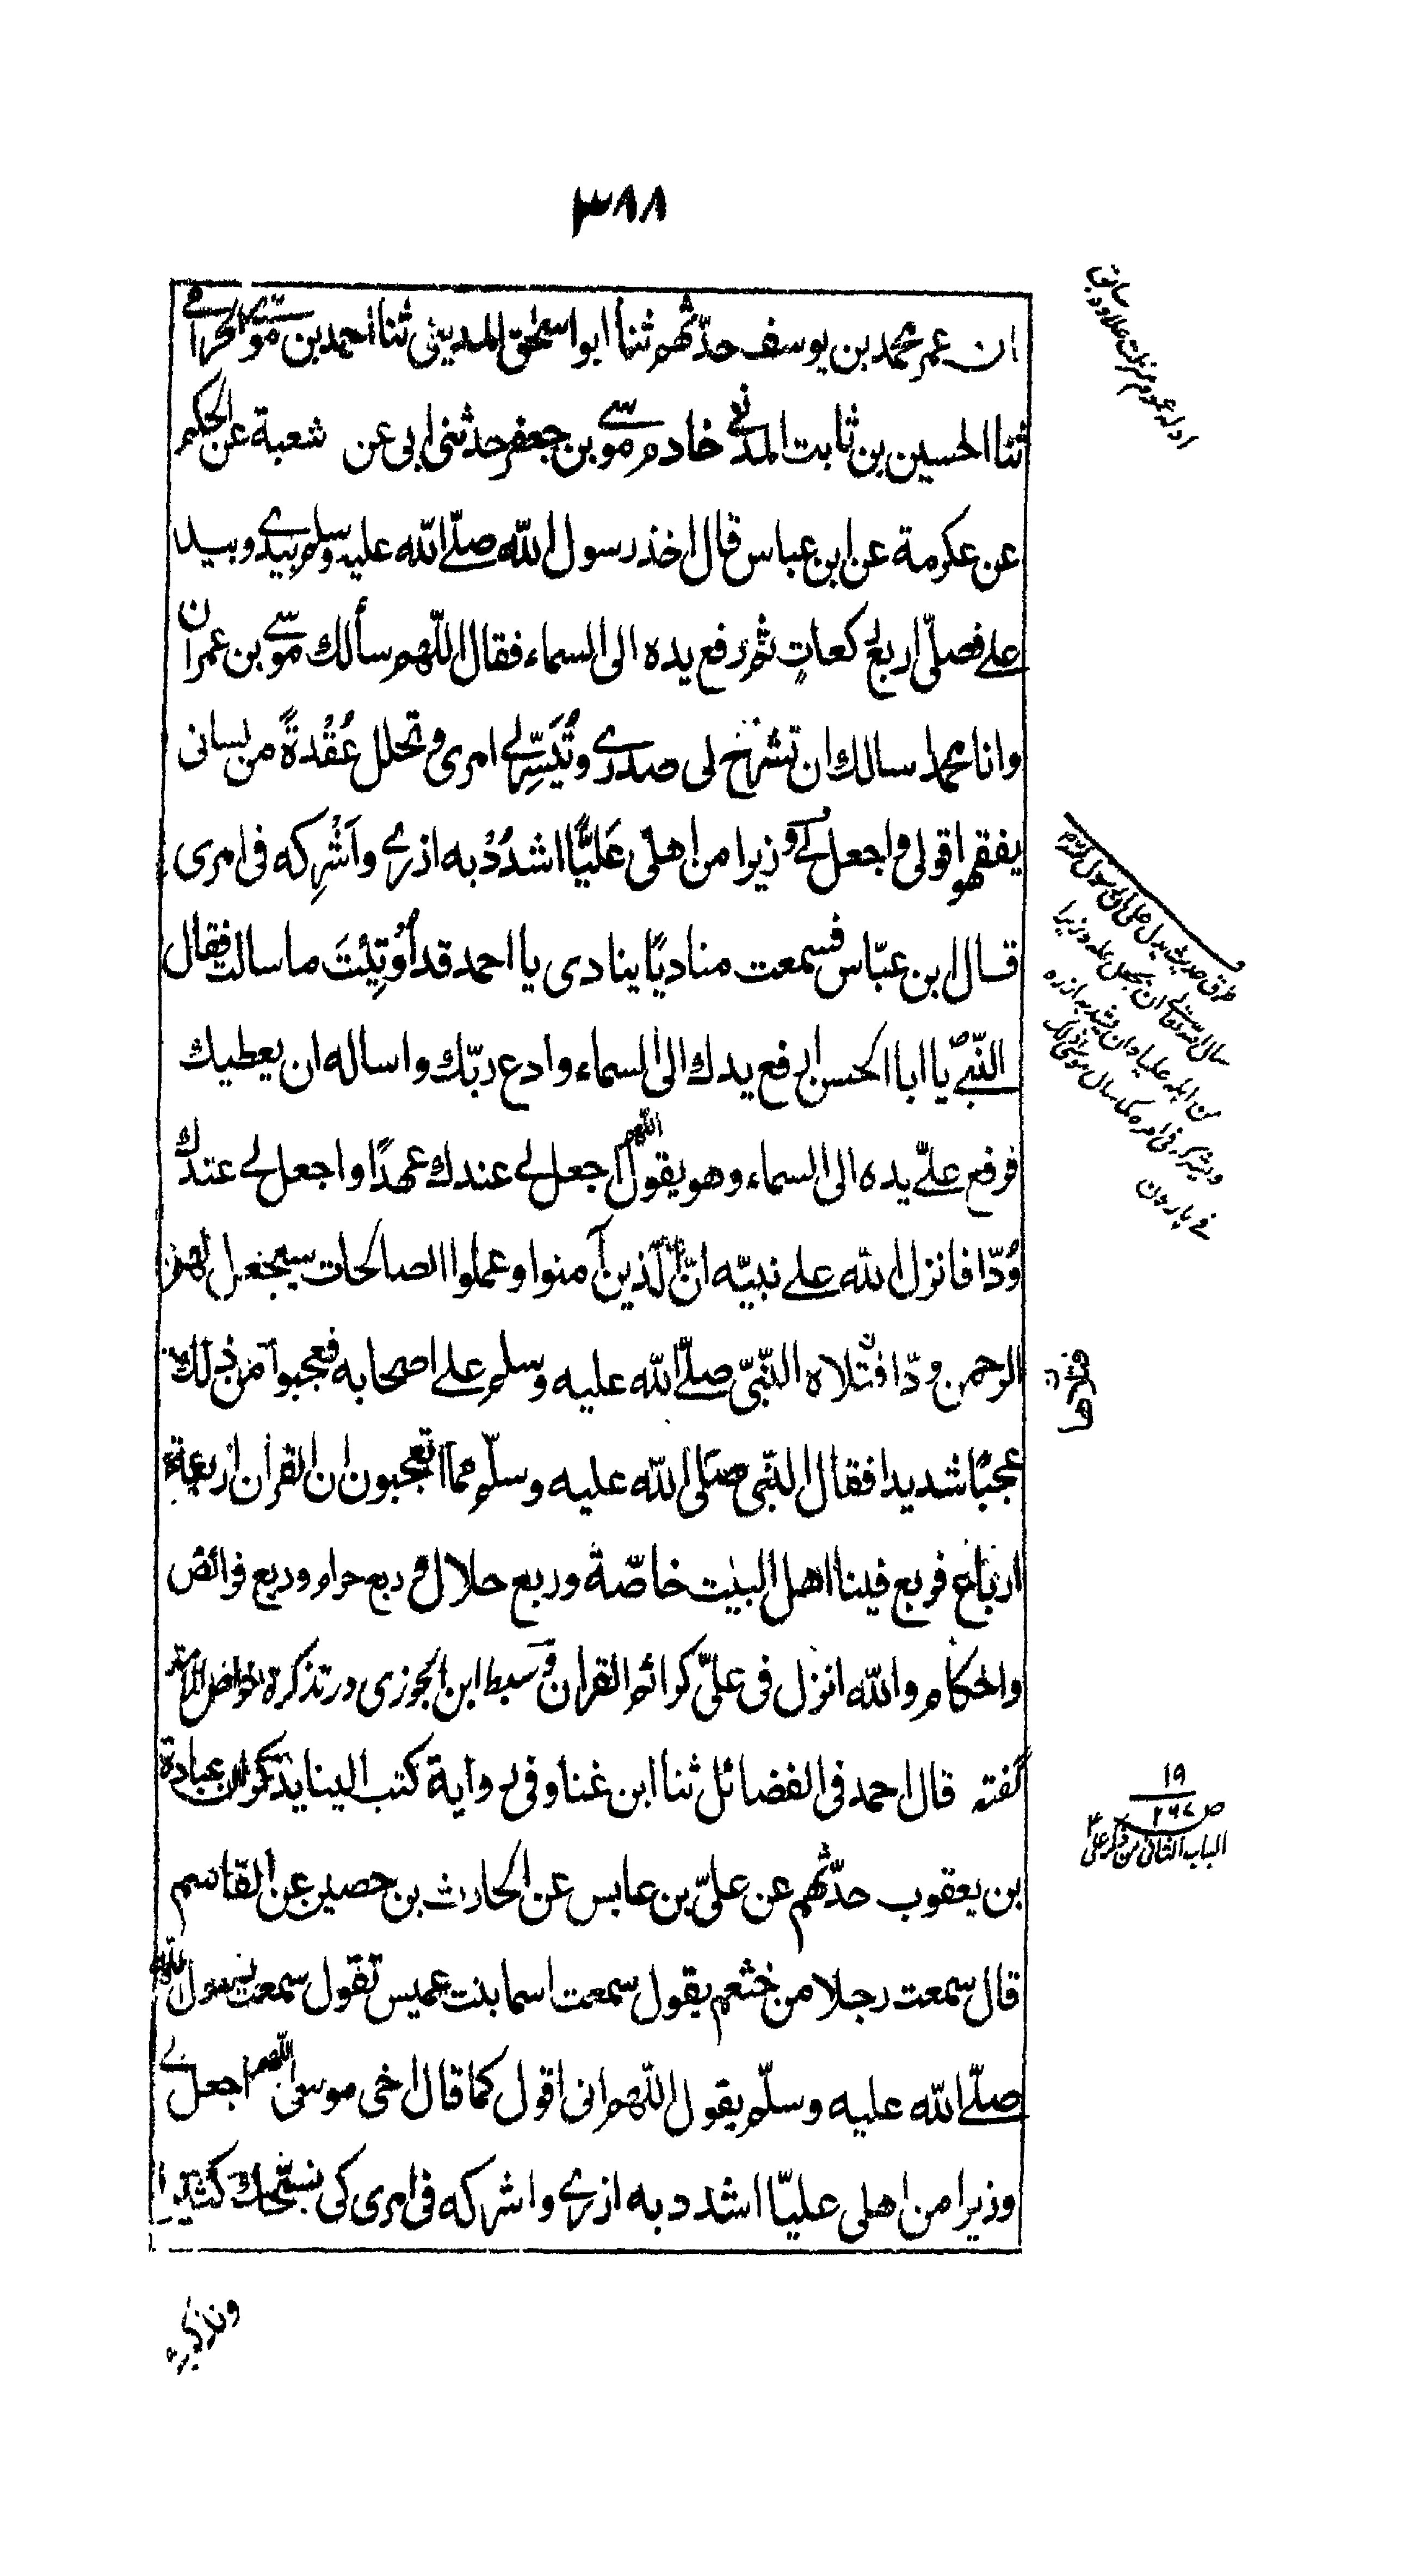 ٣٨٨
ان عمر محمد بن يوسف حدّثهم ثنا ابو اسحٰق المديني ثنا احمد بن موسے الحرامے
ثنا الحسين بن ثابت المدنے خادم موسے بن جعفر حدثنى ابى عن شعبة عن الحكم
عن عكرمة عن ابن عباس قال اخذ رسول الله صلّے الله عليه وسلم بيدے وبيد
علے فصلّى اربع ركعاتٍ ثم رفع يده الى السماء فقال اللّهم سألك موسے بن عمران
وانا محمد اسالك ان تشرح لى صدرے وتُيَسِّر لے امرى وتحلل عُقْدةً من لسانى
يفقهوا قولى واجعل لے وزيرا من اهلى عَليًّا اشدُدْ به ازرے واَشْرِكه فى امرى
قال ابن عبّاس فسمعت مناديًا ينادى يا احمد قد اُوتِيْتَ ما سالت فقال
النّبے يا ابا الحسن ارفع يدك الى السماء وادع ربّك واساله ان يعطيك
فرفع علےّ يده الى السماء وهو يقول اللّهم اجعل لے عندك عهدًا واجعل لے عندك
وُدّا فانزل الله علے نبيّه انّ الّذين آمنوا وعملوا الصالحات سيجعل لهم
الرحمن ودّا فتلاه النّبىّ صلّے الله عليه وسلم علے اصحابه فعجبوا من ذلك
عجبًا شديدا فقال النّبى صلّى الله عليه وسلّم ممّا تعجبون ان القران اربعة
ارباع فربع فينا اهل البيت خاصّة وربع حلال وربع حرام وربع فرائض
واحكام والله انزل فى علىّ كرائم القران و سبط ابن الجوزى در تذكرة خواص الامة
گفته قال احمد فى الفضائل ثنا ابن غنا وفى رواية كتب الينا يذكران عبادة
بن يعقوب حدّثهم عن علىّ بن عابس عن الحارث بن حصين عن القاسم
قال سمعت رجلا من خثعم يقول سمعت اسما بنت عميس تقول سمعت رسول الله
صلّے الله عليه وسلّم يقول اللّهم انى اقول كما قال اخى موسى اللّهم اجعل لے
وزيرا من اهلى عليّا اشدد به ازرے واشركه فى امرى كى نسبّحك كثيرا
ونذكرك
ادله عموم منزلت علاوه سابق
طرق حديث
سال الله تعالے ان يجعل عليه وزيرا
من اهله عليا وان يشد به ازره
ويشركه فى امره كما سال موسى ذلك
فے هارون
١٩
ص ٢٦٧
الباب الثانى من ذكر علىؑ